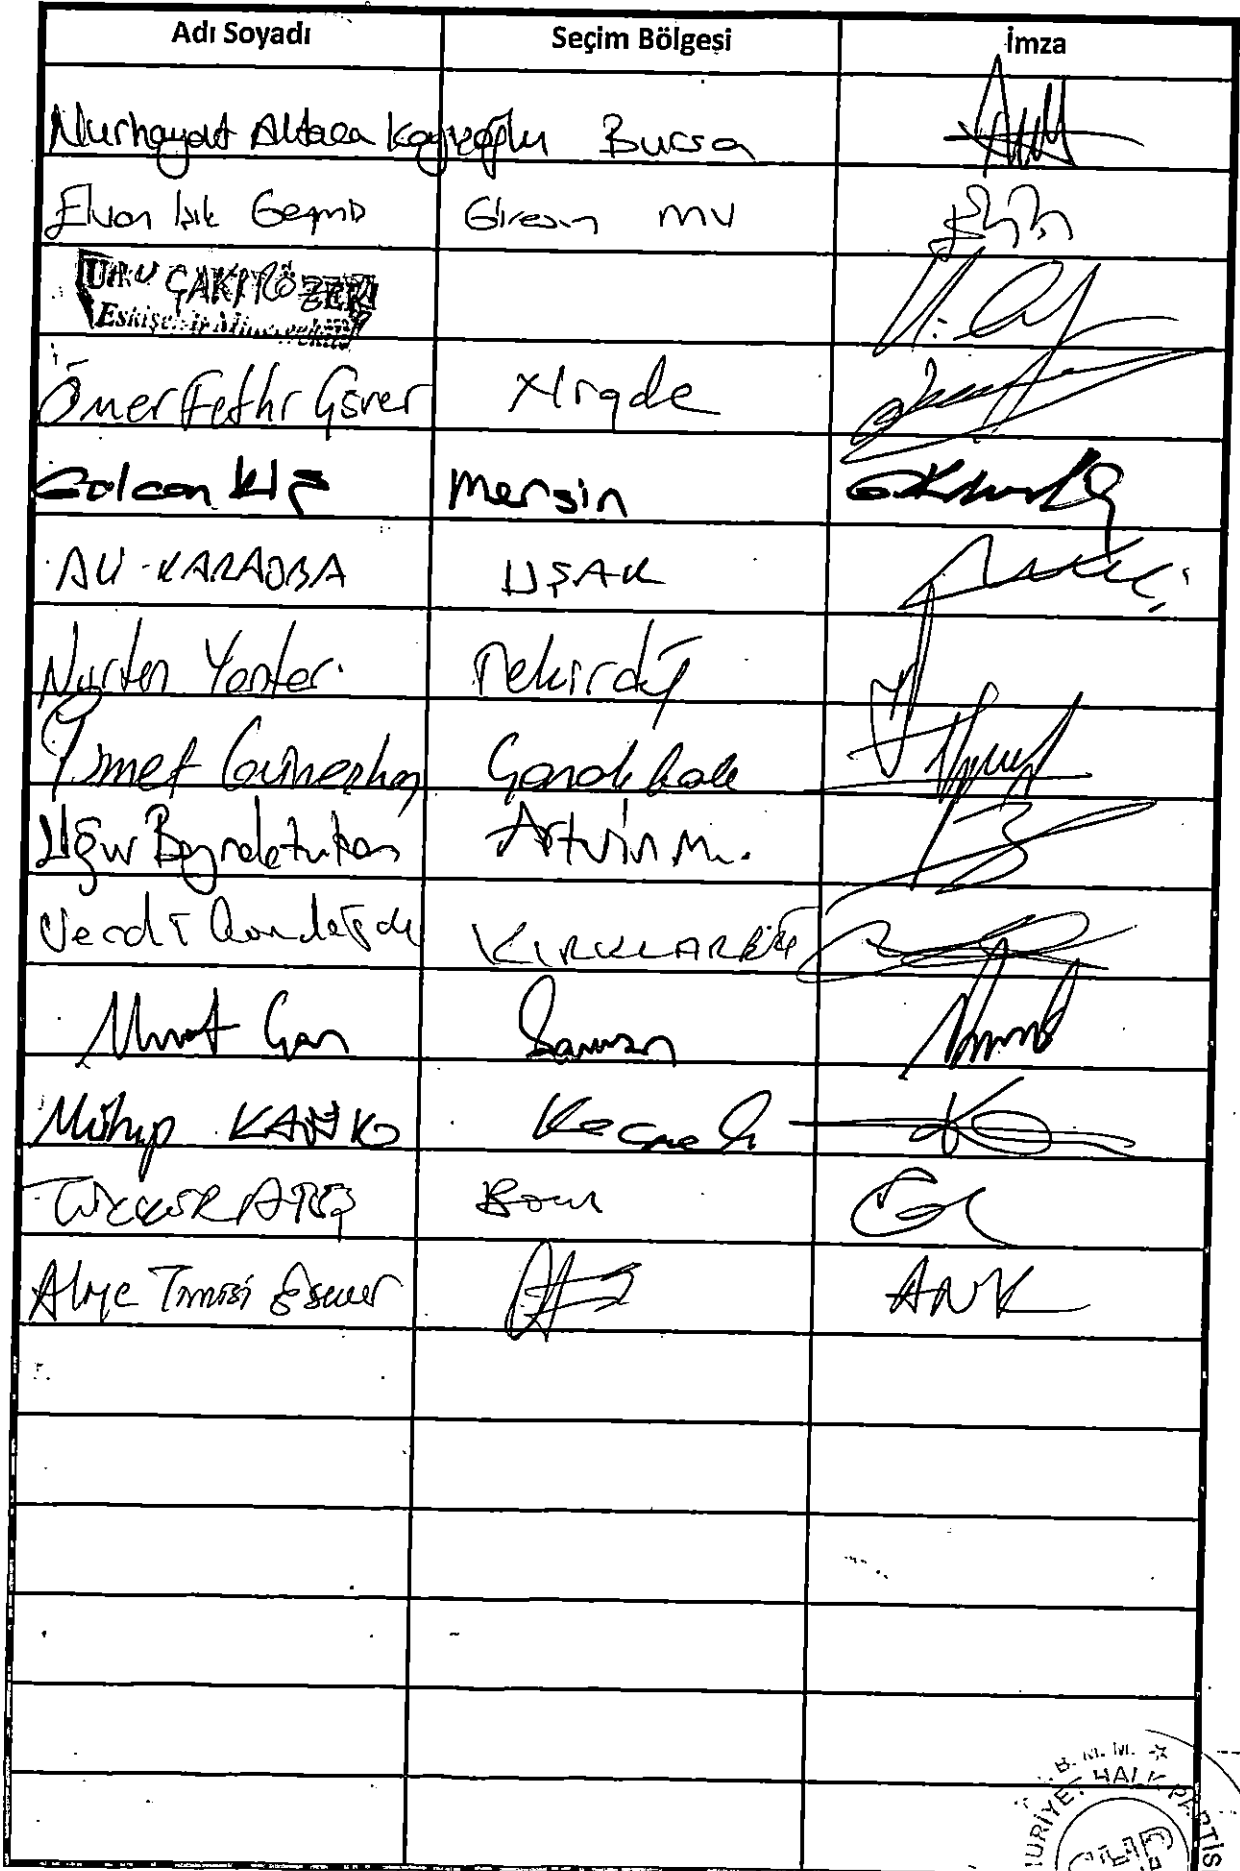 Adı Soyadı Seçim Bölgesi İmza
Nurhayat Altaca Kayışoğlu Bursa
Elvan Işık Gezmiş Giresun mv
Utku ÇAKIRÖZER
Eskişehir Milletvekili
Ömer Fethi Gürer Niğde
Gülcan Kış Mersin
ALİ KARAOBA UŞAK
Nurten Yontar Tekirdağ
İsmet Güneşhan Çanakkale
Uğur Bayraktutan Artvin M.
Vecdi Gündoğdu KIRKLARELİ
Murat Çan Samsun
Mühip KANKO Kocaeli
TÜRKER ATEŞ Bolu
Aliye Timisi Ersever
ANK
B. M. M.
HALK PARTİS